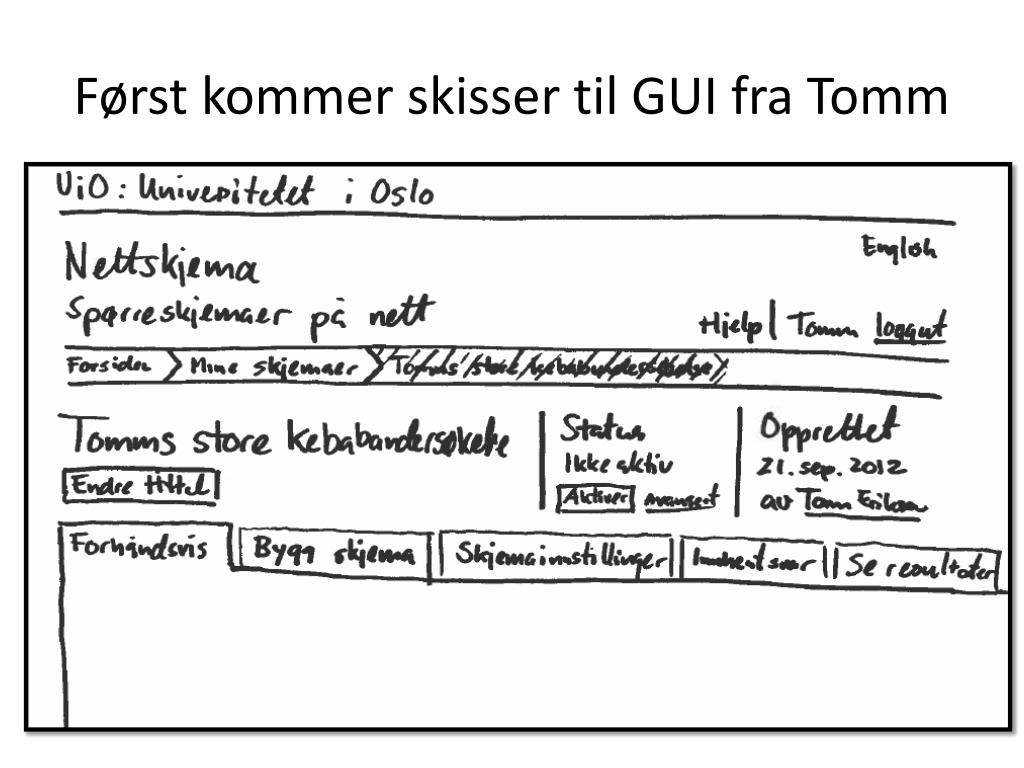 Først kommer skisser til GUI fra Tomm
UiO: Universitetet i Oslo
English
Nettskjema
Spørreskjemaer på nett
Hjelp | Tomm loggut
Forsiden > Mine skjemaer >
Tomms store kebabundersøkelse
Endre tittel
Status
Ikke aktiv
Aktiver avansert
Opprettet
21. sep. 2012
av Tomm Eriksen
Forhåndsvis
Bygg skjema
Skjemainnstillinger
Innhent svar
Se resultater